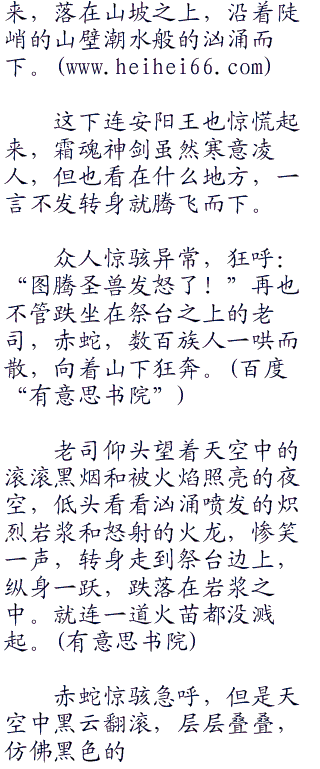 来，落在山坡之上，沿着陡
峭的山壁潮水般的汹涌而
下。(www.heihei66.com)
这下连安阳王也惊慌起
来，霜魂神剑虽然寒意凌
人，但也看在什么地方，一
言不发转身就腾飞而下。
众人惊骇异常，狂呼：
“图腾圣兽发怒了！”再也
不管跌坐在祭台之上的老
司，赤蛇，数百族人一哄而
散，向着山下狂奔。(百度
“有意思书院”)
老司仰头望着天空中的
滚滚黑烟和被火焰照亮的夜
空，低头看看汹涌喷发的炽
烈岩浆和怒射的火龙，惨笑
一声，转身走到祭台边上，
纵身一跃，跌落在岩浆之
中。就连一道火苗都没溅
起。(有意思书院)
赤蛇惊骇急呼，但是天
空中黑云翻滚，层层叠叠，
仿佛黑色的